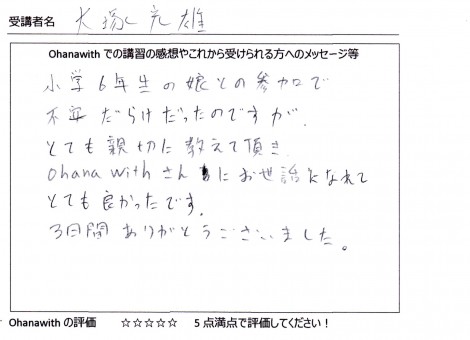 受講者名 大塚元雄
Ohanawith での講習の感想やこれから受けられる方へのメッセージ等
小学6年生の娘との参加で
不安だらけだったのですが、
とても親切に教えて頂き
Ohana with さんにお世話になれて
とても良かったです。
3日間ありがとうございました。
Ohanawith の評価 ☆☆☆☆☆ 5 点満点で評価してください！